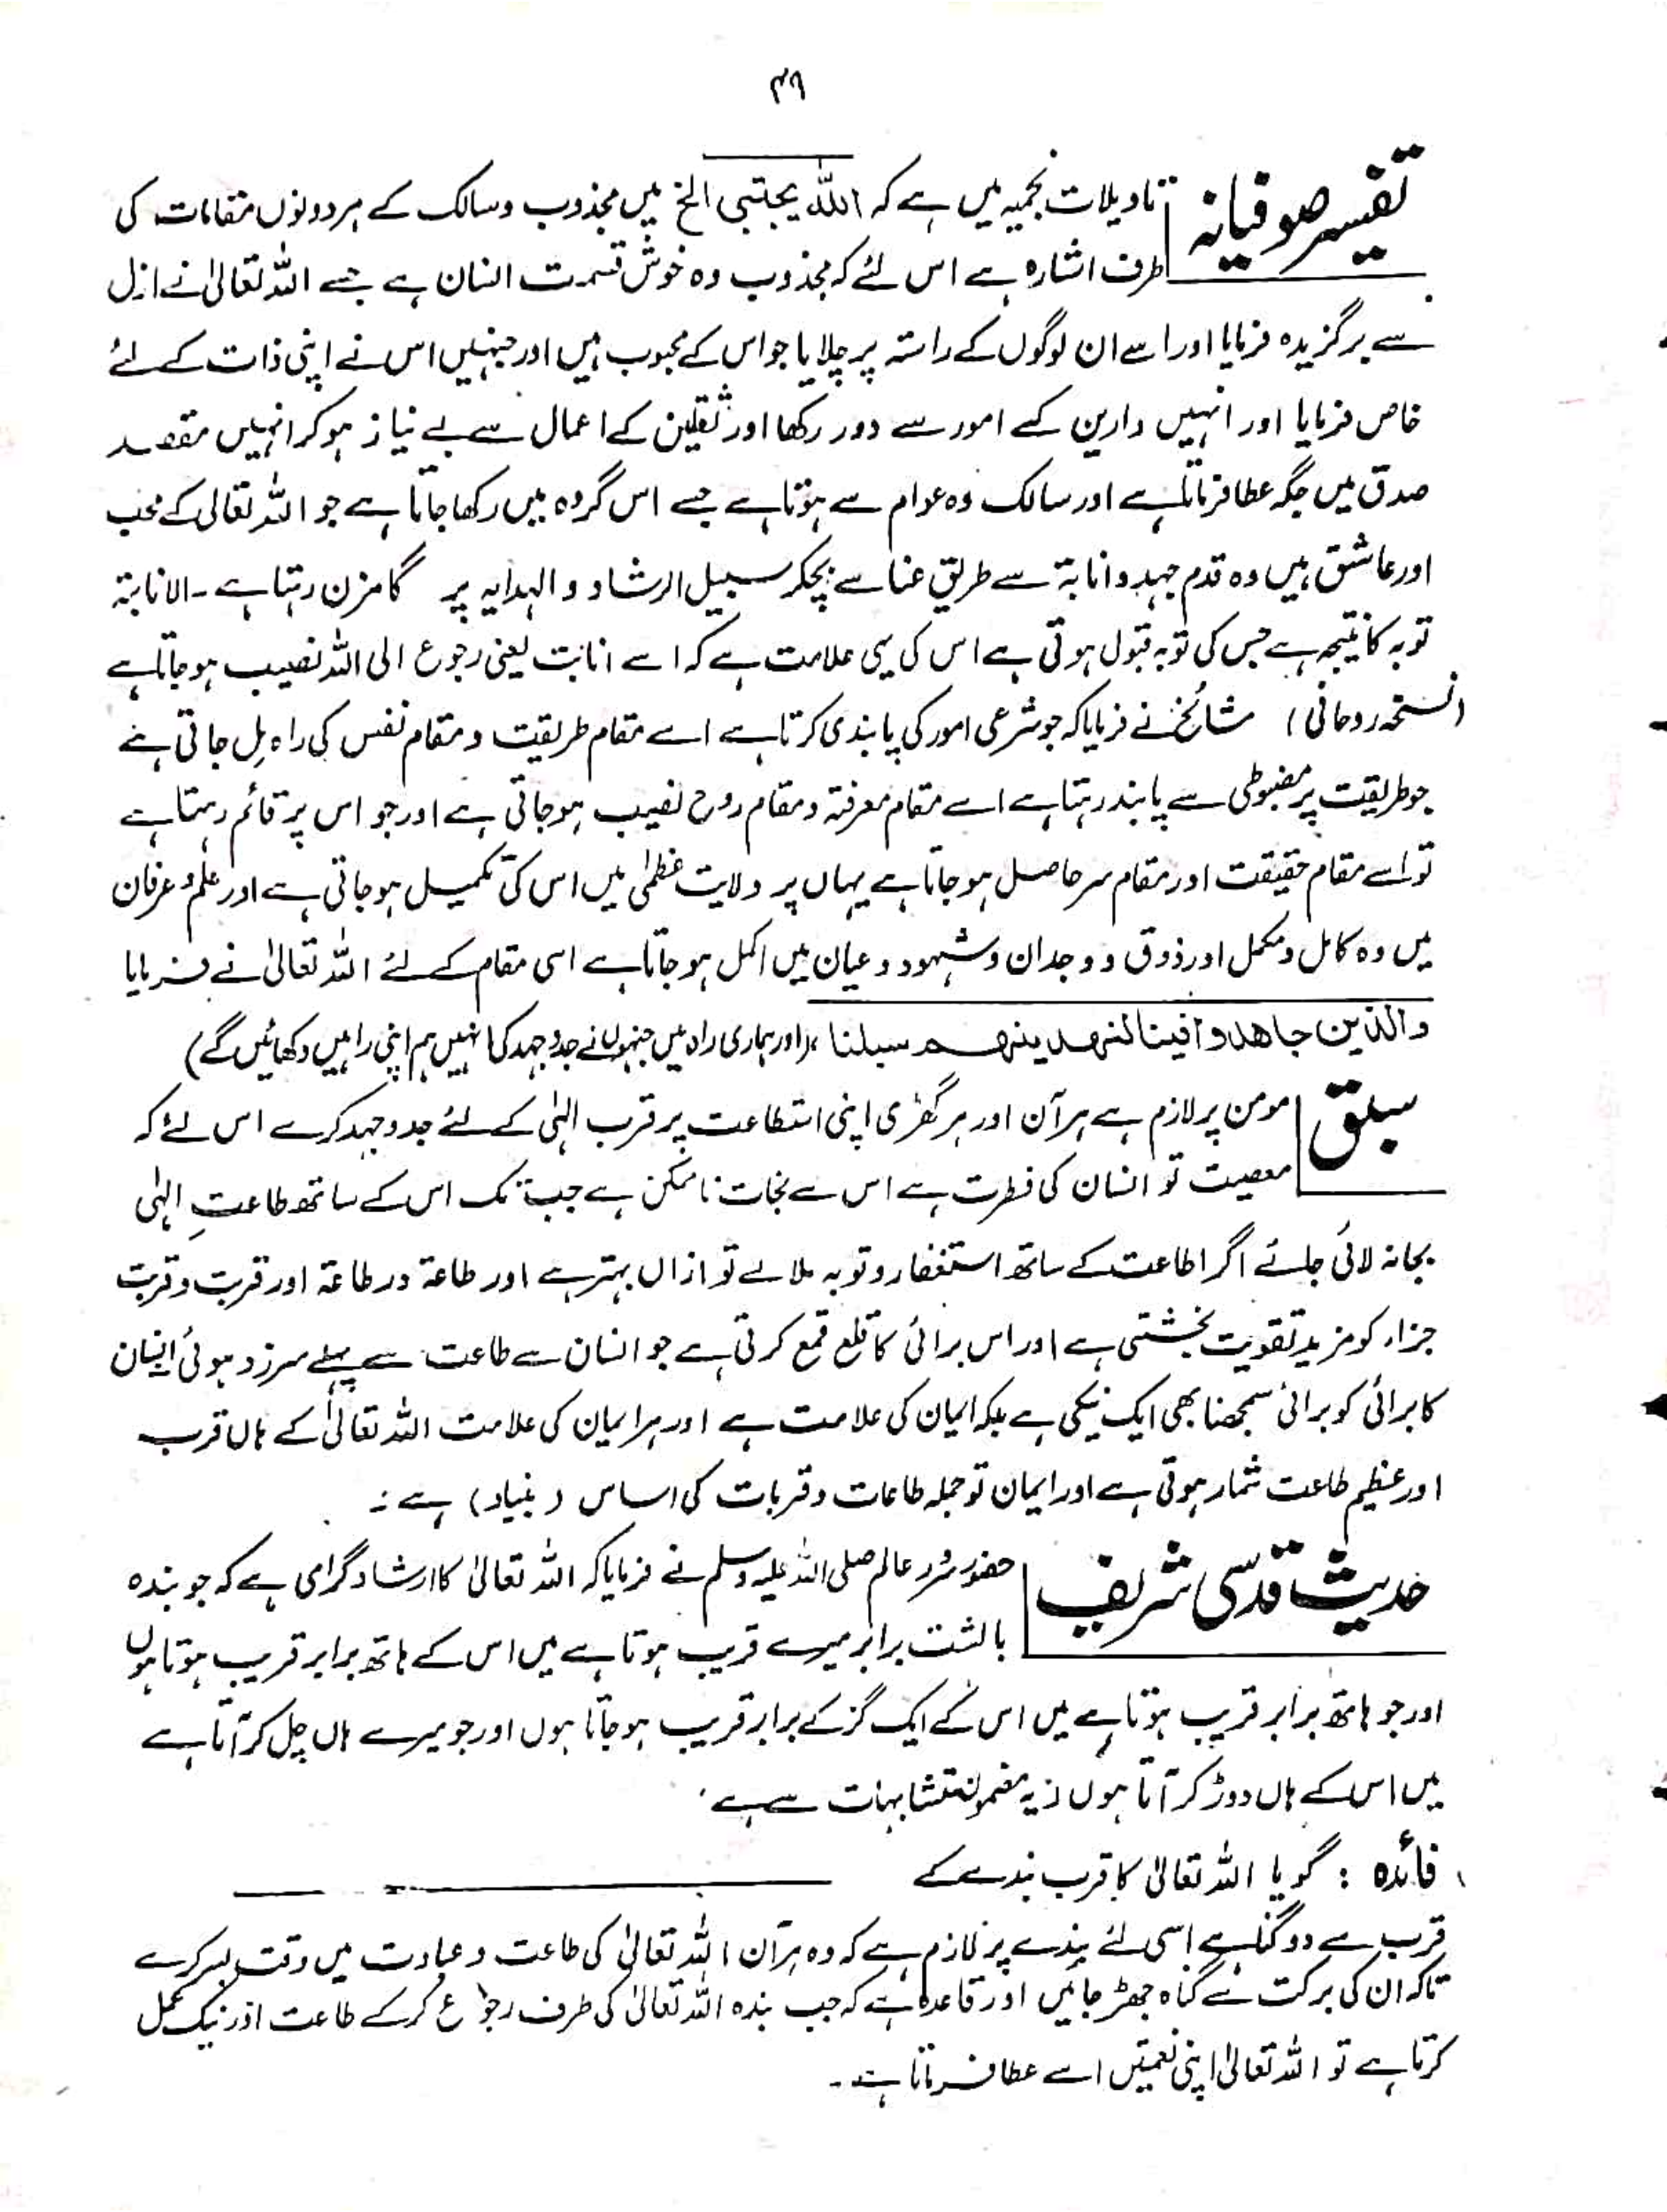 ۳۹
تفسیر صوفیانہ
تاویلات نجمیہ میں ہے کہ اللہ یجتبی الخ میں مجذوب و سالک کے ہر دونوں مقامات کی
طرف اشارہ ہے اس لئے کہ مجذوب وہ خوش قسمت انسان ہے جسے اللہ تعالیٰ نے ازل
سے برگزیدہ فرمایا اور اسے ان لوگوں کے راستہ پر چلایا جو اس کے محبوب ہیں اور جنہیں اس نے اپنی ذات کے لئے
خاص فرمایا اور انہیں دارین کے امور سے دور رکھا اور ثقلین کے اعمال سے بے نیاز ہو کر انہیں مقعد
صدق میں جگہ عطا فرماتا ہے اور سالک وہ عوام سے ہوتا ہے جسے اس گروہ میں رکھا جاتا ہے جو اللہ تعالیٰ کے محب
اور عاشق ہیں وہ قدم جہد و انابۃ سے طریق عنا سے بچکر سبیل الرشاد و الہدایہ پر گامزن رہتا ہے ۔ الانابۃ
توبہ کا نتیجہ ہے جس کی توبہ قبول ہوتی ہے اس کی یہی علامت ہے کہ اسے انابت یعنی رجوع الی اللہ نصیب ہو جاتا ہے
(نسخہ روحانی) مشائخ نے فرمایا کہ جو شرعی امور کی پابندی کرتا ہے اسے مقام طریقت و مقام نفس کی راہ مل جاتی ہے
جو طریقت پر مضبوطی سے پابند رہتا ہے اسے مقام معرفۃ و مقام روح نصیب ہو جاتی ہے اور جو اس پر قائم رہتا ہے
تو اسے مقام حقیقت اور مقام سر حاصل ہو جاتا ہے یہاں پر ولایت عظمیٰ میں اس کی تکمیل ہو جاتی ہے اور علم و عرفان
میں وہ کامل و مکمل اور ذوق و وجدان و شہود و عیان میں اکمل ہو جاتا ہے اسی مقام کے لئے اللہ تعالیٰ نے فرمایا
والذین جاھدوا فینا لنھدینھم سبلنا ، (اور ہماری راہ میں جنہوں نے جدوجہد کی انہیں ہم اپنی راہیں دکھائیں گے)
سبق
مومن پر لازم ہے ہر آن اور ہر گھڑی اپنی استطاعت پر قرب الٰہی کے لئے جدوجہد کرے اس لئے کہ
معصیت تو انسان کی فطرت ہے اس سے نجات ناممکن ہے جب تک اس کے ساتھ طاعتِ الٰہی
بجا نہ لائی جائے اگر اطاعت کے ساتھ استغفار و توبہ ملا لے تو ازاں بہتر ہے اور طاعۃ در طاعۃ اور قربت و قربت
جزاء کو مزید تقویت بخشتی ہے اور اس برائی کا قلع قمع کرتی ہے جو انسان سے طاعت سے پہلے سرزد ہوئی انسان
کا برائی کو برائی سمجھنا بھی ایک نیکی ہے بلکہ ایمان کی علامت ہے اور ہر ایمان کی علامت اللہ تعالیٰ کے ہاں قرب
اور عظیم طاعت شمار ہوتی ہے اور ایمان تو جملہ طاعات و قربات کی اساس (بنیاد) ہے :
حدیث قدسی شریف
حضور سرور عالم صلی اللہ علیہ وسلم نے فرمایا کہ اللہ تعالیٰ کا ارشاد گرامی ہے کہ جو بندہ
بالشت برابر میرے قریب ہوتا ہے میں اس کے ہاتھ برابر قریب ہوتا ہوں
اور جو ہاتھ برابر قریب ہوتا ہے میں اس کے ایک گز کے برابر قریب ہو جاتا ہوں اور جو میرے ہاں چل کر آتا ہے
میں اس کے ہاں دوڑ کر آتا ہوں : یہ مضمون متشابہات سے ہے ۔
فائدہ : گویا اللہ تعالیٰ کا قرب بندے کے
قرب سے دوگنا ہے اسی لئے بندے پر لازم ہے کہ وہ ہر آن اللہ تعالیٰ کی طاعت و عبادت میں وقت بسر کرے
تاکہ ان کی برکت سے گناہ جھڑ جائیں اور قاعدہ ہے کہ جب بندہ اللہ تعالیٰ کی طرف رجوع کر کے طاعت اور نیک عمل
کرتا ہے تو اللہ تعالیٰ اپنی نعمتیں اسے عطا فرماتا ہے ۔